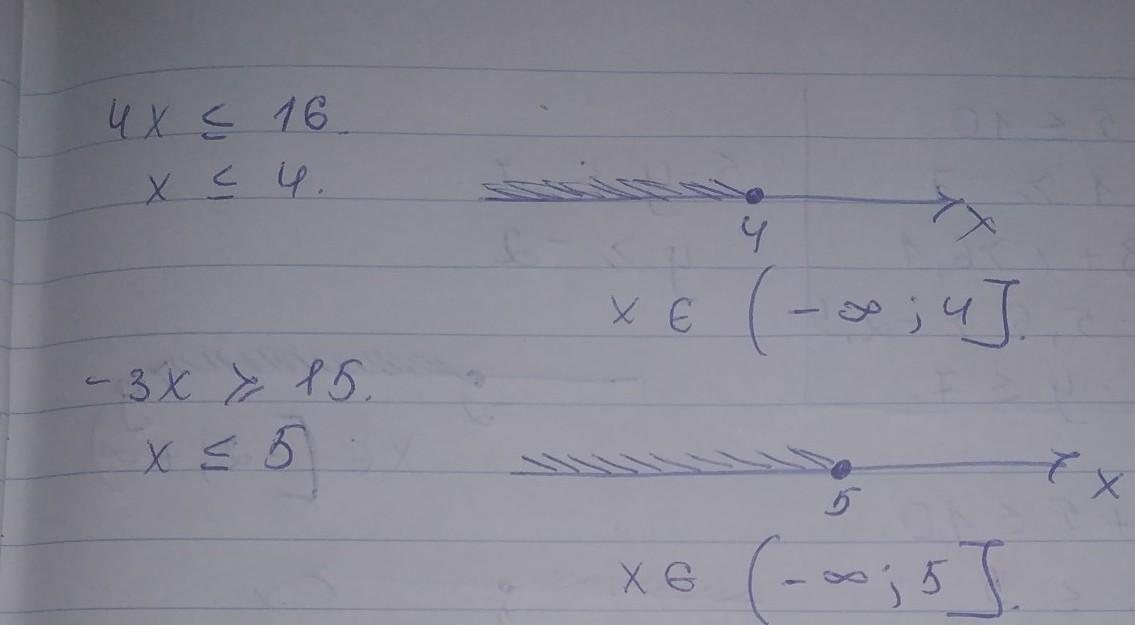 4x ≤ 16.
x ≤ 4.
4 x
x ∈ (-∞; 4].
-3x ⩾ 15.
x ≤ 5
5 x
x ∈ (-∞; 5].